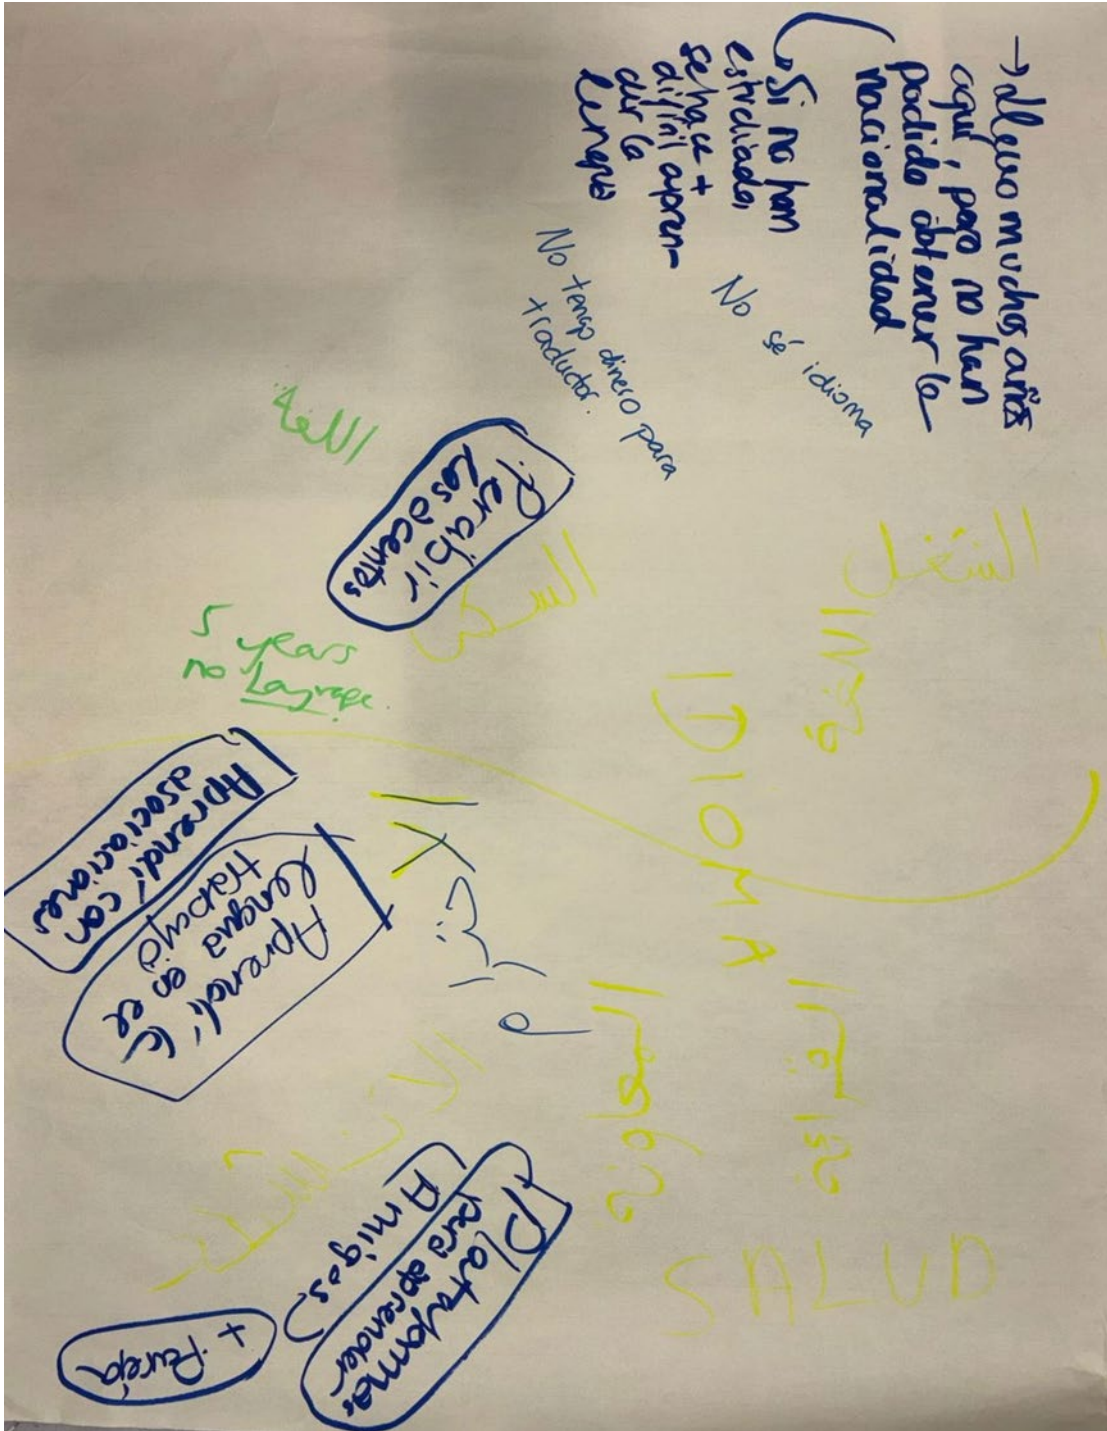 → Llevo muchos años
aquí, pero no han
podido obtener la
nacionalidad
Si no han
estudiado,
se hace +
difícil apren-
der la
lengua
No sé idioma
No tengo dinero para
traductor.
اللغة
Percibir
los acentos
السكن
الشغل
اللغة
IDIOMA
5 years
no
Aprendí con
asociaciones
Aprendí la
lengua en el
trabajo
القراية
المعاونة
SALUD
Plataformas
para aprender
Amigos
+ Pareja